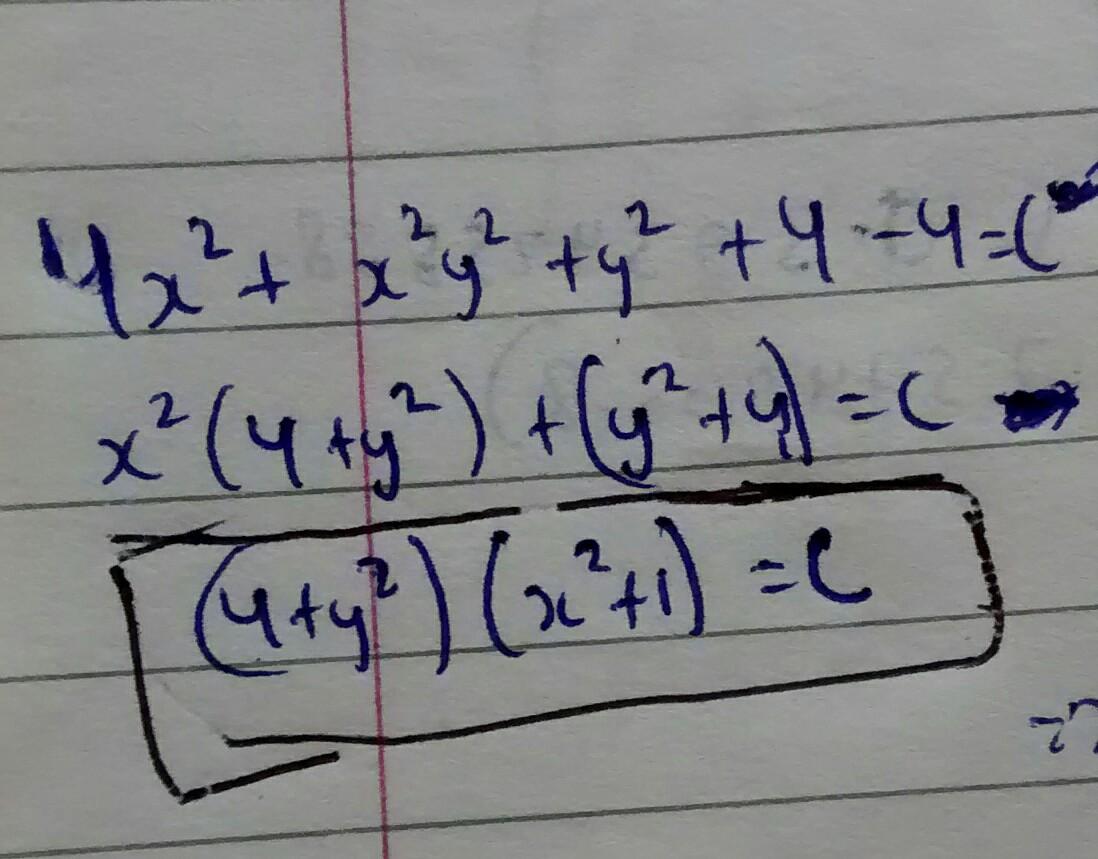 4x² + x²y² + y² + 4 - 4 = C
x²(4 + y²) + (y² + 4) = C
(4 + y²)(x² + 1) = C